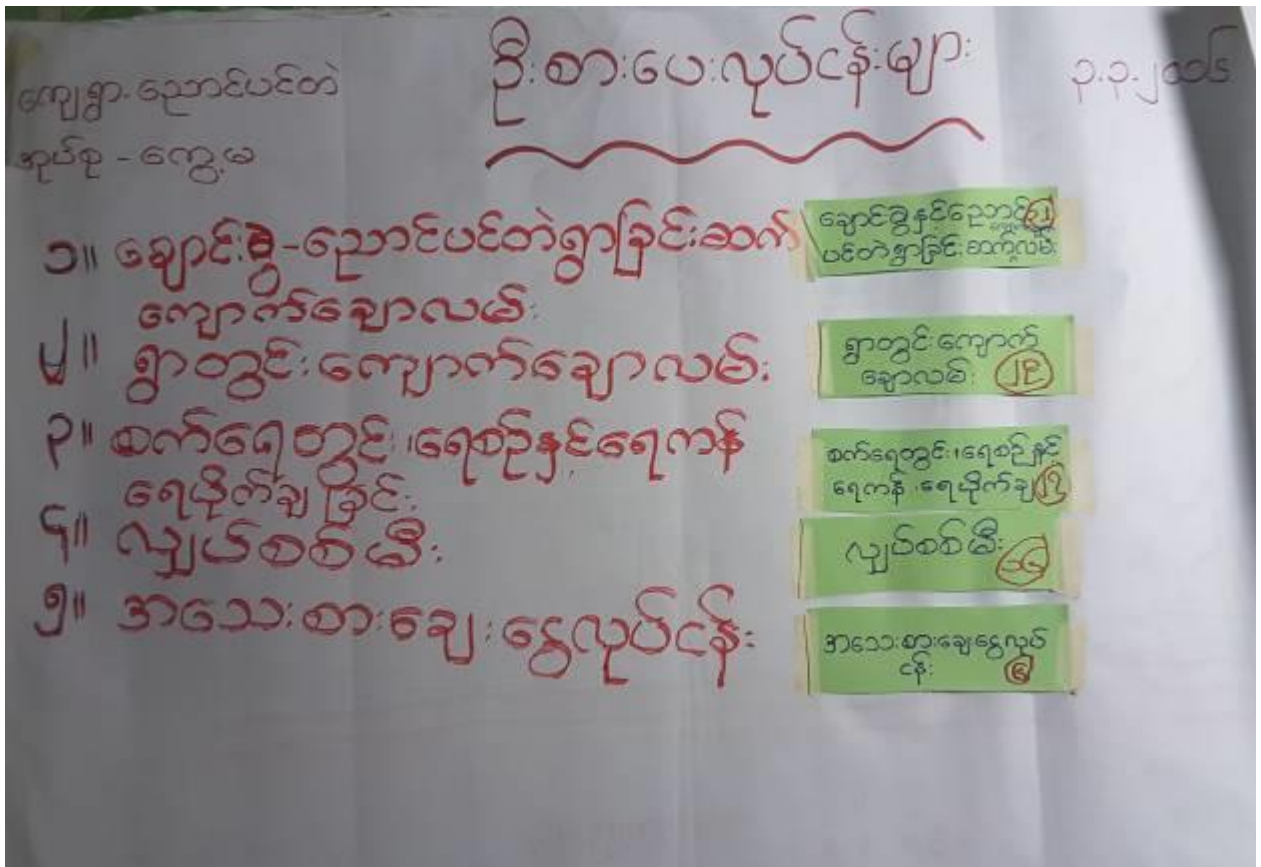 ဦးစားပေးလုပ်ငန်းများ
ကျေးရွာ-ညောင်ပင်တဲ
၃.၃.၂၀၁၆
အုပ်စု - ကွေ့မ
၁။ ချောင်းခွ-ညောင်ပင်တဲရွာခြင်းဆက်
ကျောက်ချောလမ်း
၂။ ရွာတွင်းကျောက်ချောလမ်း
၃။ စက်ရေတွင်း၊ရေစဉ်နှင့်ရေကန်
ရေပိုက်ချခြင်း
၄။ လျှပ်စစ်မီး
၅။ အသေးစားချေးငွေလုပ်ငန်း
ချောင်းခွနှင့်ညောင် ၃၂
ပင်တဲရွာခြင်းဆက်လမ်း
ရွာတွင်းကျောက်
ချောလမ်း ၂၉
စက်ရေတွင်း၊ရေစဉ်နှင့်
ရေကန်၊ရေပိုက်ချ ၂၇
လျှပ်စစ်မီး ၁၆
အသေးစားချေးငွေလုပ်
ငန်း ၆